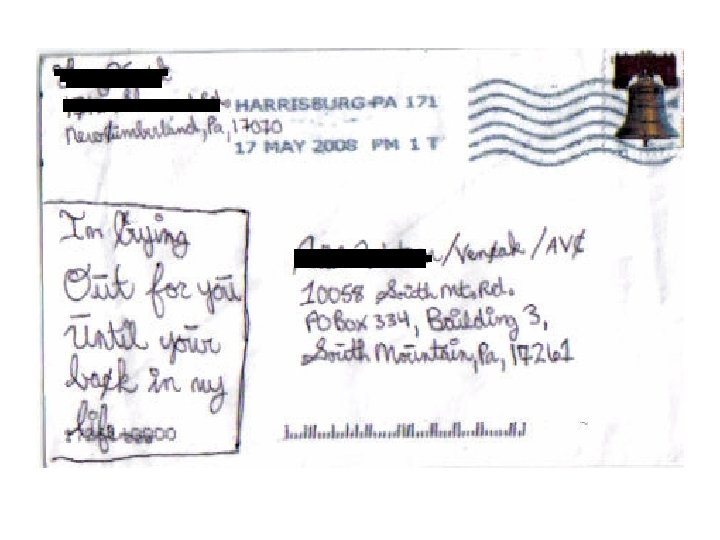 HARRISBURG PA 171
New Cumberland, Pa, 17070
17 MAY 2008 PM 1 T
I'm Crying
Out for you
Until your
back in my
life
/ Venzak / AV¢
10058 South Mt. Rd.
PO Box 334, Building 3,
South Mountain, Pa, 17261